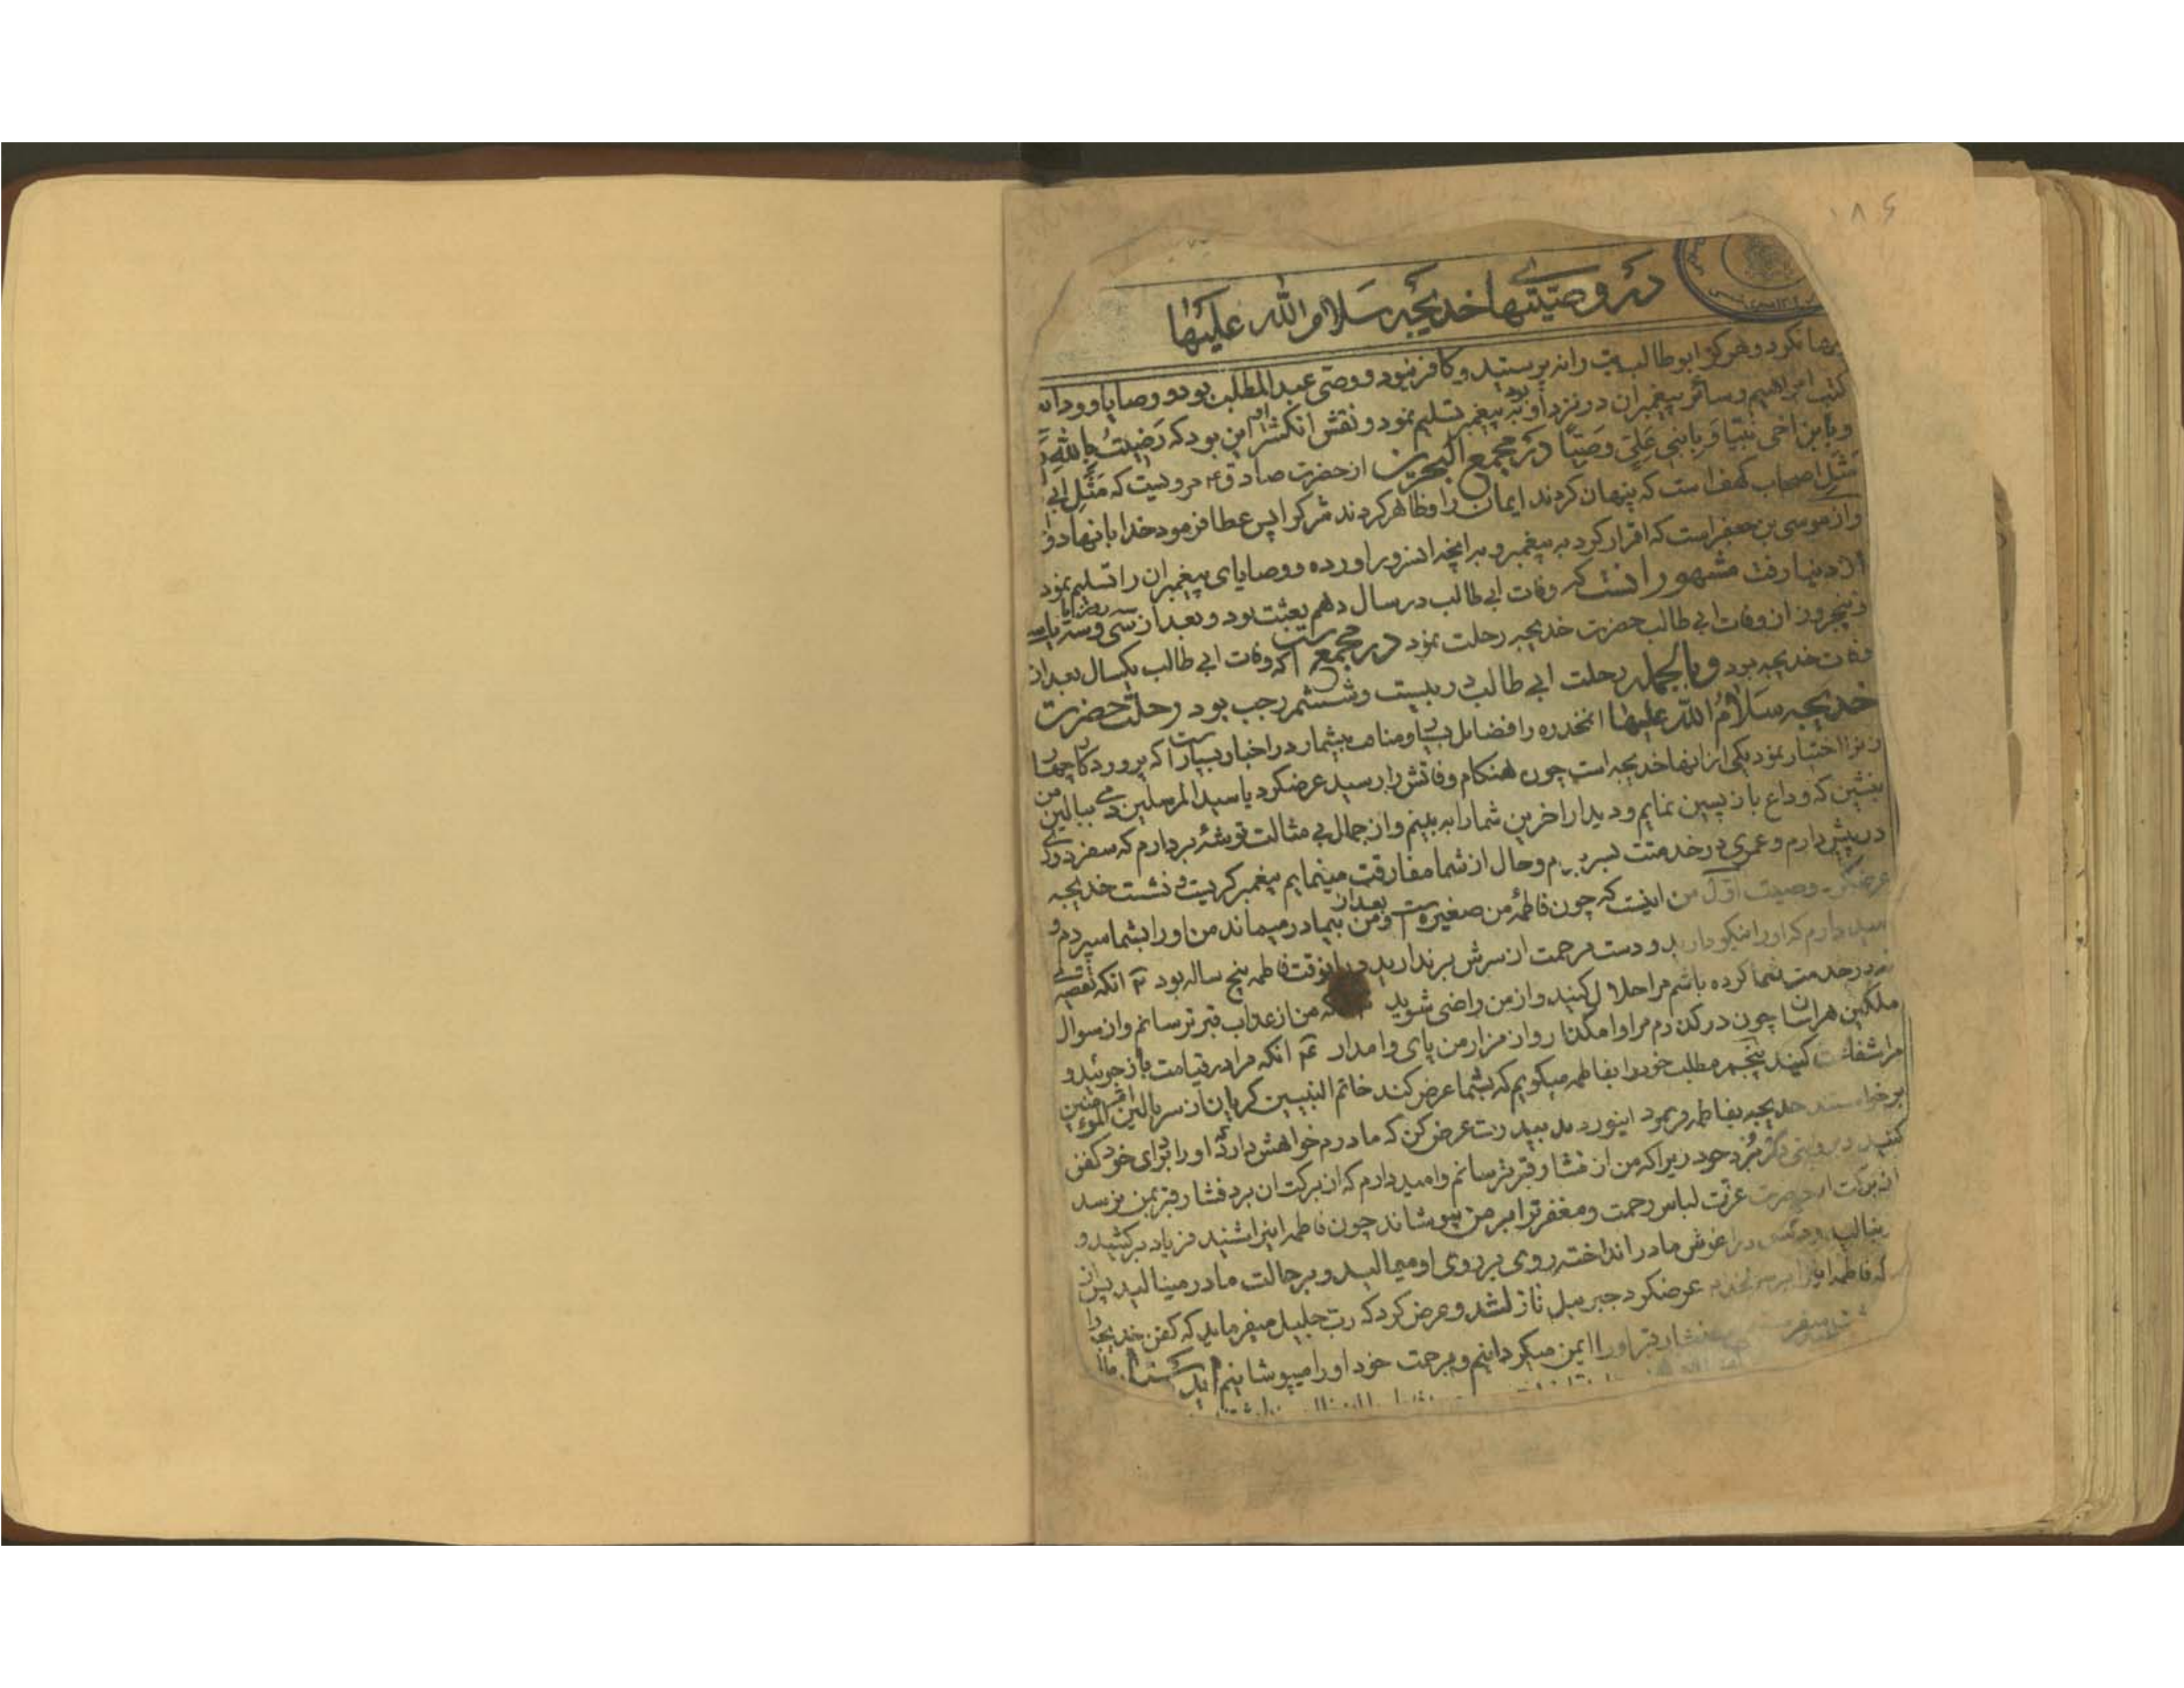 ۱۸۶
در وصیتهای خدیجه سلام الله علیها
نکرد و هرکز ابوطالب بت را نه پرستید و کافر نبود و وصی عبدالمطلب بود و وصایا و ودایع
کتب ابراهیم و سائر پیغمبران در نزد او بود به پیغمبر تسلیم نمود و نقش انکشتر او این بود که رَضیتُ بِاللهِ
وَبِابن اَخی نَبیّاً وَبِابنی عَلِیّ وَصِیّاً در مجمع البحرین از حضرت صادق ع مرویست که مَثَل ابی
مَثَل اصحاب کهف است که پنهان کردند ایمان را و ظاهر کردند شرک را پس عطا فرمود خدا بانها دو
و از موسی بن جعفر است که اقرار کرد به پیغمبر و به انچه اند و برآورده و وصایای پیغمبران را تسلیم نمود
از دنیا رفت مشهور انست که وفات ابی طالب در سال دهم بعثت بود و بعد از سی و سه روز یا
پنجروز از وفات ابی طالب حضرت خدیجه رحلت نمود در مجمع است که وفات ابی طالب یکسال بعد از
وفات خدیجه بود و بالجمله رحلت ابی طالب در بیست و ششم رجب بود رحلت حضرت
خدیجه سلامُ الله علیها انمخدره را فضایل بی و مناقب بیشمار در اخبار بسیار است که پروردکار چهار
زنرا اختیار نمود یکی از انها خدیجه است چون هنکام وفاتش را رسید عرضکرد یا سیدالمرسلین دمی ببالین من
بنشین که وداع باز پسین نمایم و دیدار اخرین شما را به بینم و از جمال بی مثالت توشهٔ بردارم که سفر دوری
در پیش دارم و عمری در خدمتت بسر بردم و حال از شما مفارقت مینمایم پیغمبر کریست و نشست خدیجه
عرضکرد وصیت اوّل من اینست که چون فاطمهٔ من صغیره است و بعد از من بیمادر میماند من او را بشما سپردم و
امید دارم که او را نیکو دارید و دست مرحمت از سرش برندارید و در انوقت فاطمه پنج ساله بود ۲ آنکه تقصیری
که در خدمت شما کرده باشم مرا حلال کنید و از من راضی شوید که من از عذاب قبر ترسانم و از سوال
ملکین هراسان چون درکذرم مرا وامکذار و از مزار من پای وامدار ۴ انکه مرا در قیامت باز جوئید و
مرا شفاعت کنید پنجم مطلب خود را بفاطمه میکویم که بشما عرض کند خاتم النبیین کریان از سر بالین ام المؤمنین
برخواستند خدیجه بفاطمه فرمود اینور دیده به پدرت عرض کن که مادرم خواهش دارد که او را بردای خود کفن
کنید زیراکه من از فشار قبر ترسانم و امیدوارم که از برکت ان برد فشار قبر بمن نرسد
از برکت ان حضرت عزّت لباس رحمت و مغفرترا بر من بپوشاند چون فاطمه اینرا شنید فریاد برکشید و
بنالید و دست در اغوش مادر انداخته روی بر روی او میمالید و بر حالت مادر مینالید پس از
که فاطمه اینرا عرضکرد جبرییل نازل شد و عرض کرد که رب جلیل میفرماید که کفن خدیجه را
فشار قبر او را ایمن میکردانیم و برحمت خود او را میپوشانیم